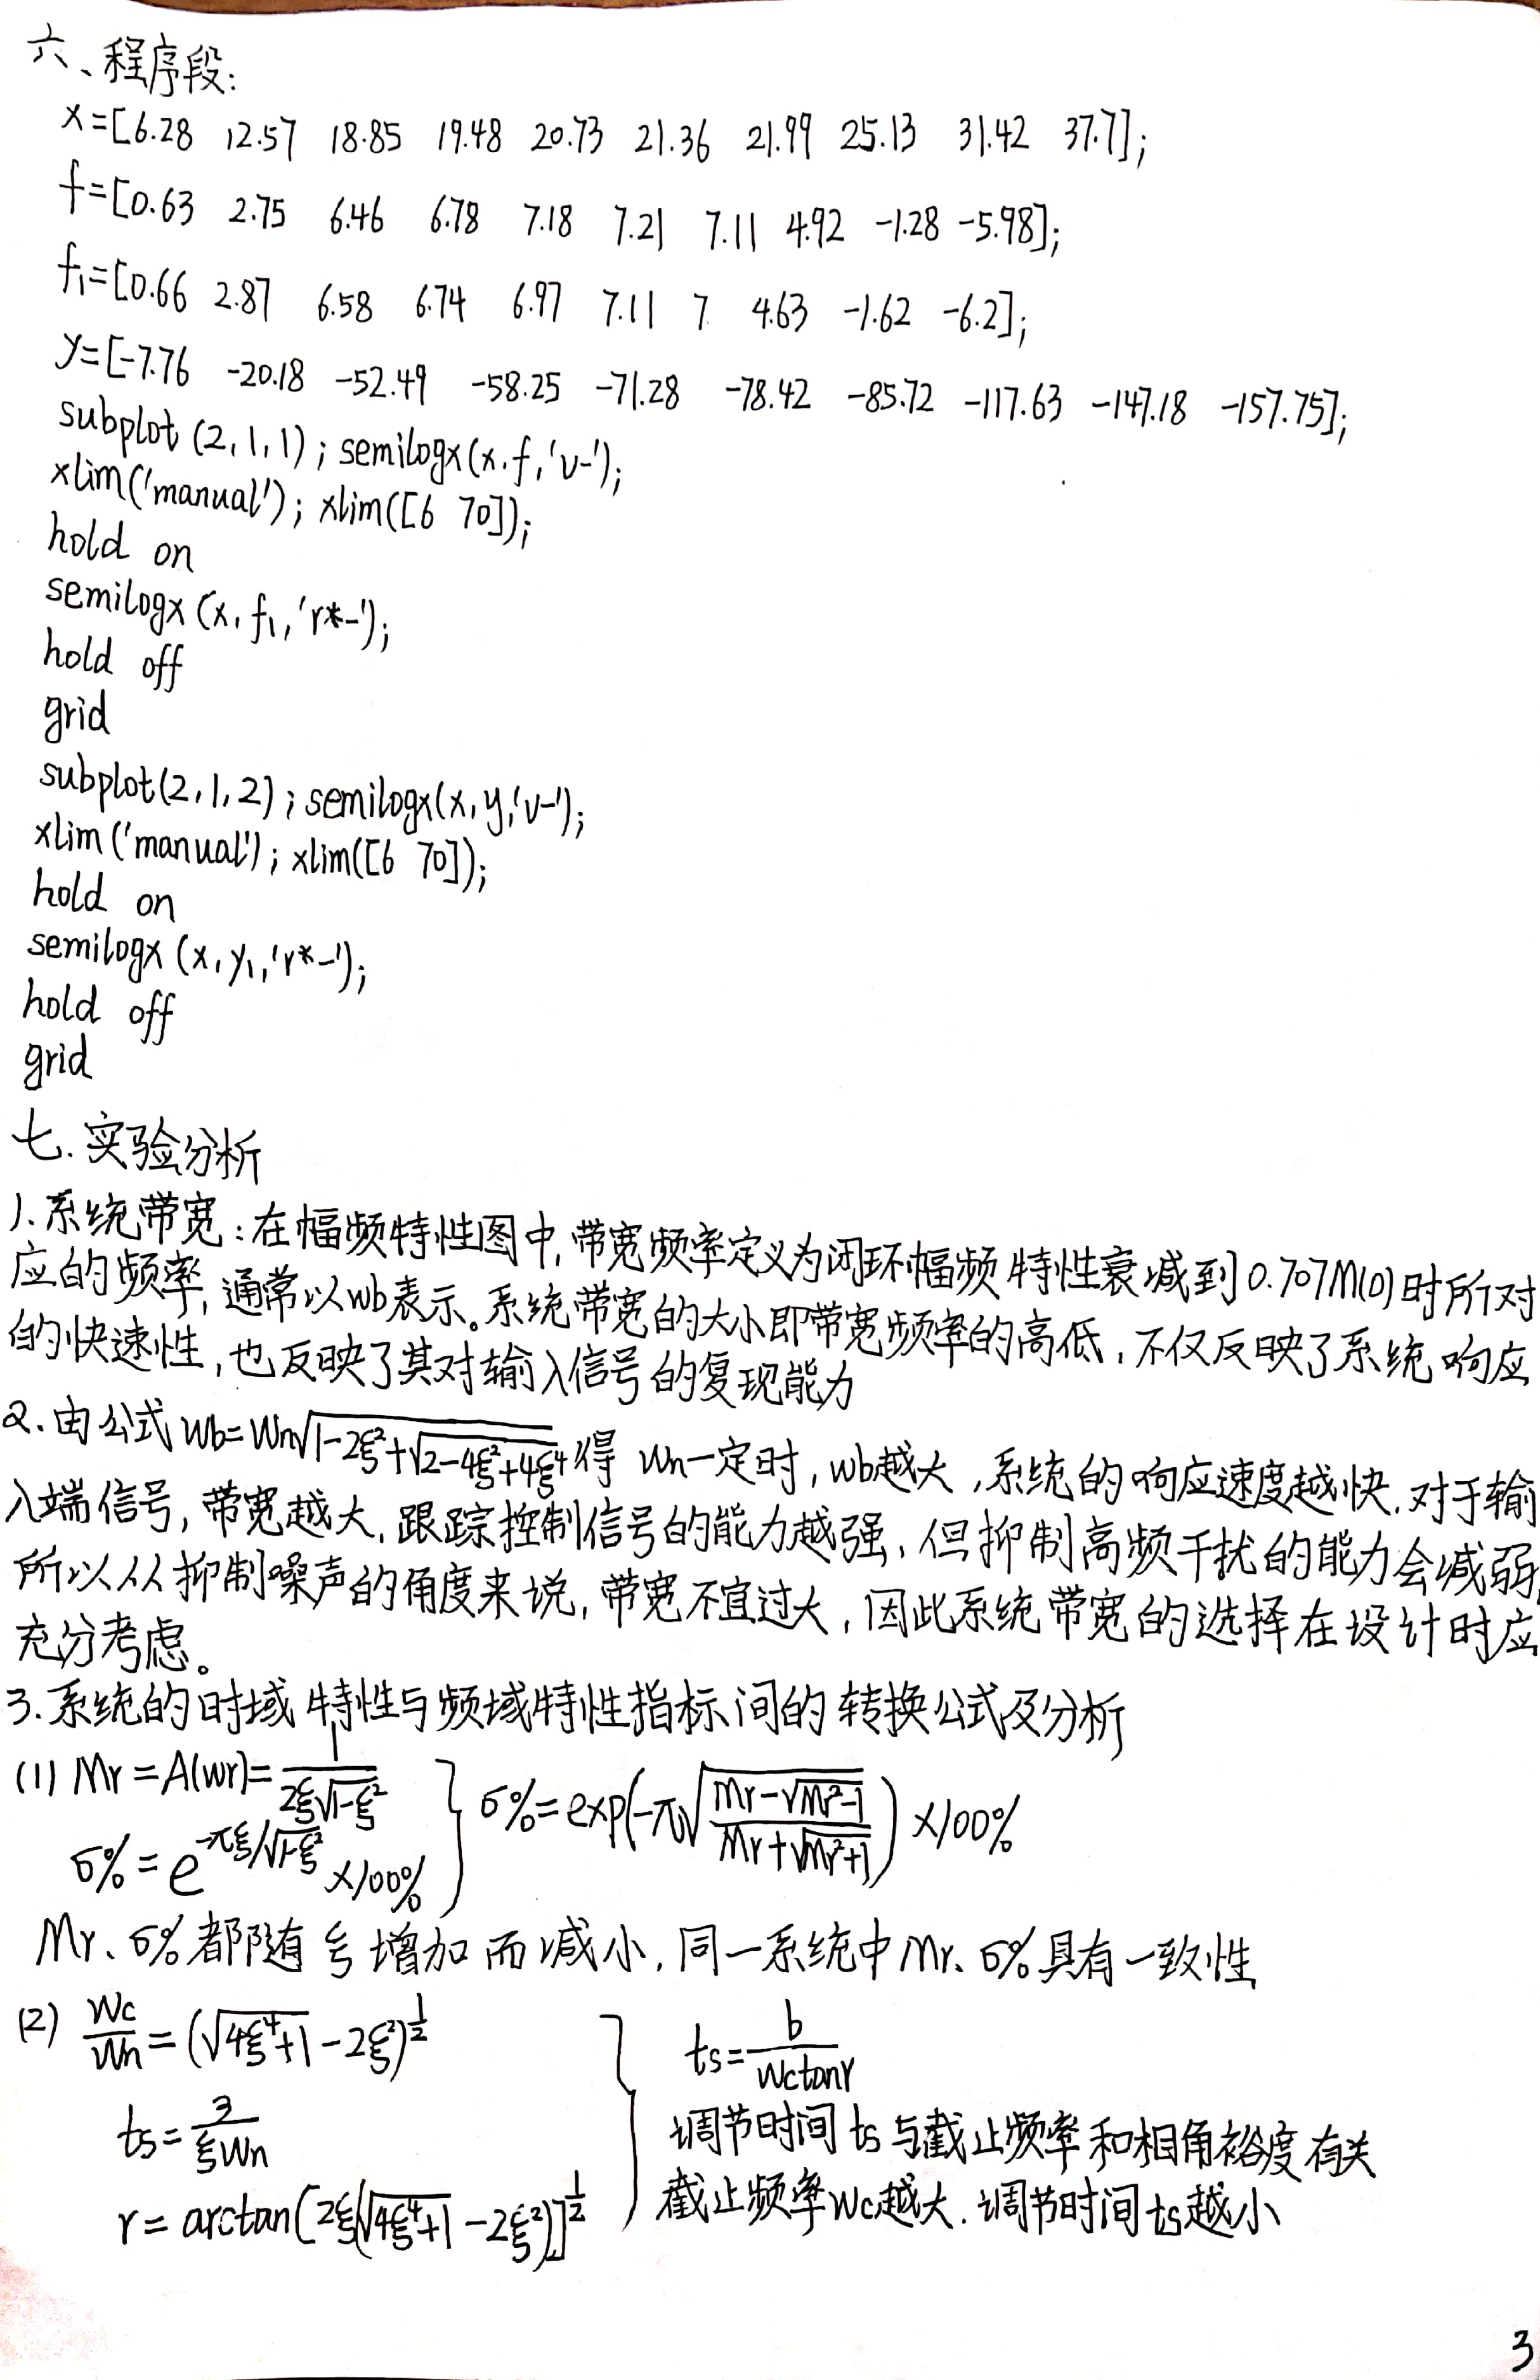 六、程序段:
x=[6.28 12.57 18.85 19.48 20.73 21.36 21.99 25.13 31.42 37.7];
f=[0.63 2.75 6.46 6.78 7.18 7.21 7.11 4.92 -1.28 -5.98];
f₁=[0.66 2.87 6.58 6.74 6.97 7.11 7 4.63 -1.62 -6.2];
y=[-7.76 -20.18 -52.49 -58.25 -71.28 -78.42 -85.72 -117.63 -147.18 -157.75];
subplot(2,1,1); semilogx(x.f,'v-');
xlim('manual'); xlim([6 70]);
hold on
semilogx(x,f₁,'r*-');
hold off
grid
subplot(2,1,2); semilogx(x,y,'v-');
xlim('manual'); xlim([6 70]);
hold on
semilogx(x,y₁,'r*-');
hold off
grid
七.实验分析
1.系统带宽:在幅频特性图中,带宽频率定义为闭环幅频特性衰减到0.707M(0)时所对
应的频率,通常以wb表示。系统带宽的大小即带宽频率的高低,不仅反映了系统响应
的快速性,也反映了其对输入信号的复现能力
2.由公式wb=wn√(1-2ξ²+√(2-4ξ²+4ξ⁴))得 wn一定时,wb越大,系统的响应速度越快.对于输
入端信号,带宽越大,跟踪控制信号的能力越强,但抑制高频干扰的能力会减弱,
所以从抑制噪声的角度来说,带宽不宜过大,因此系统带宽的选择在设计时应
充分考虑。
3.系统的时域特性与频域特性指标间的转换公式及分析
(1) Mr=A(wr)=1/(2ξ√(1-ξ²))
σ%=e^(-πξ/√(1-ξ²))×100% } σ%=exp(-π√((Mr-√(Mr²-1))/(Mr+√(Mr²+1))))×100%
Mr、σ%都随ξ增加而减小,同一系统中Mr、σ%具有一致性
(2) wc/wn=(√(4ξ⁴+1)-2ξ²)^(1/2)
ts=3/(ξwn)
r=arctan[2ξ(√(4ξ⁴+1)-2ξ²)]^(1/2)
} ts=b/(wctanr)
调节时间ts与截止频率和相角裕度有关
截止频率wc越大.调节时间ts越小
3